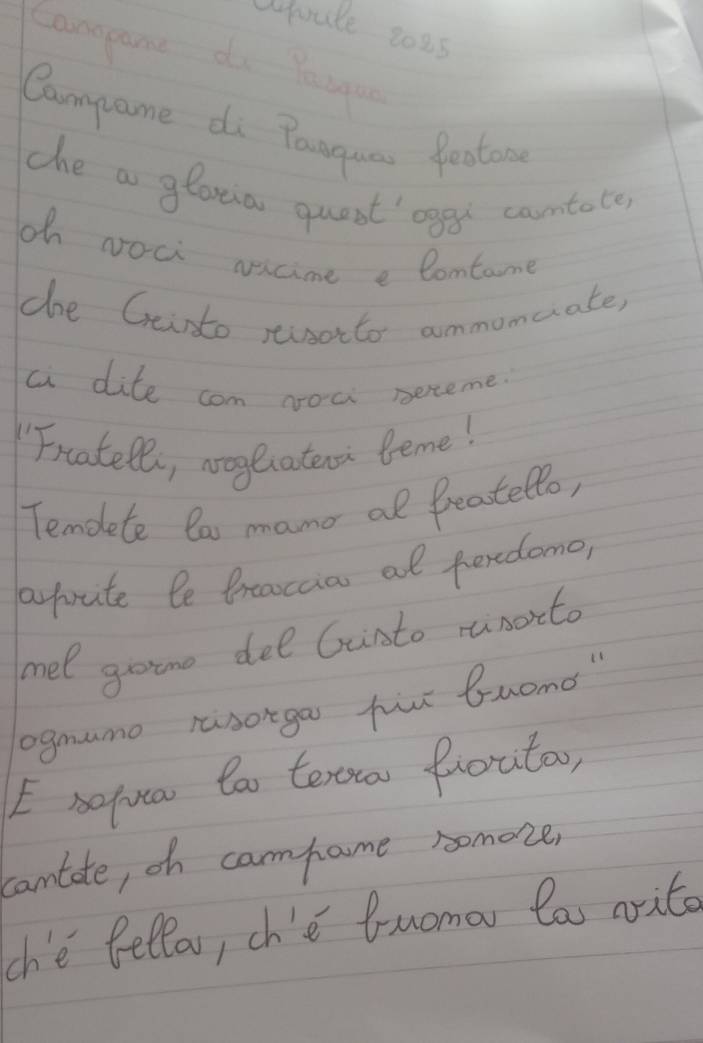 aprile 2025
Campane di Pasqua
Campane di Pasqua festose
che a gloria quest'oggi cantate,
oh voci vicine e lontane
che Cristo risorto annunciate,
ci dite con voci serene.
"Fratelli, vogliatevi bene!
Tendete la mano al freatello,
aprite le braccia al perdono,
nel giorno del Cristo risorto
ognuno risorga più buono"
E sopra la terra fiorita,
cantate, oh campane sonore,
ch'é bella, ch'é buona la vita